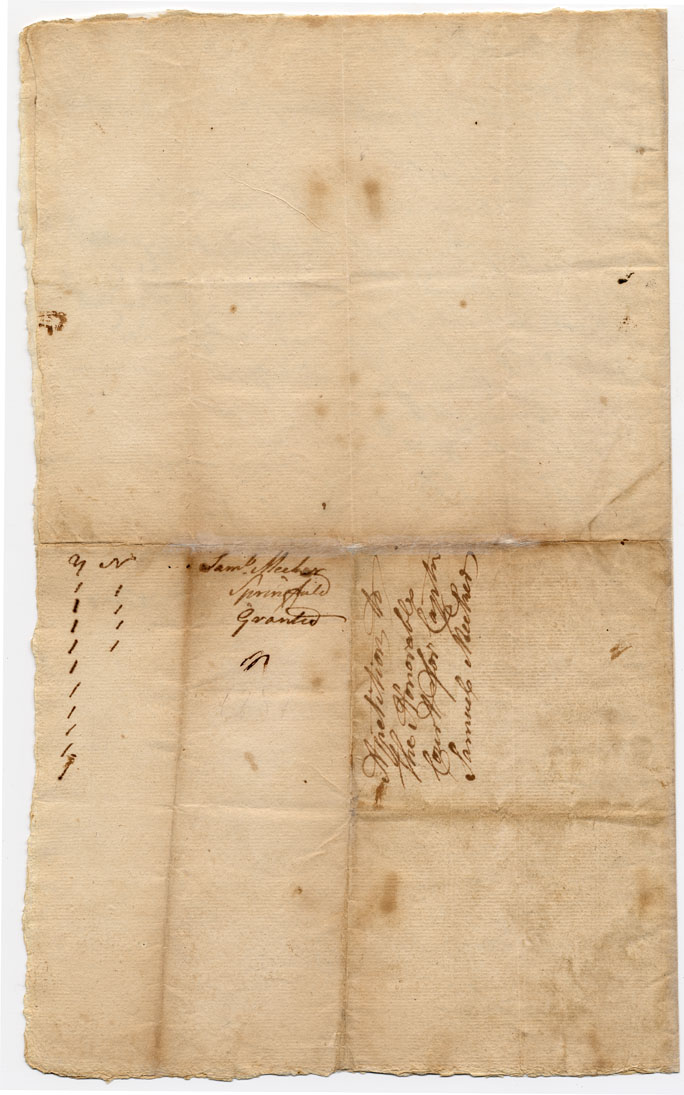 Y N
Saml. Meeker
Springfield
Granted
A petition to
the Honorable
Court for Captn
Samuel Meeker